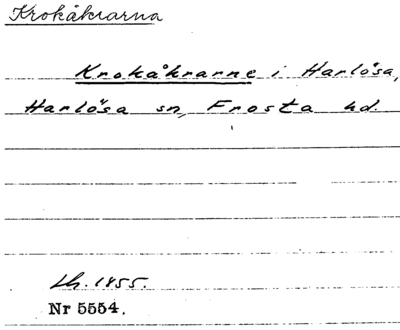 Krokåkrarna
Krokåkrarne i Harlösa,
Harlösa sn, Frosta hd.
Lh. 1855.
Nr 5554.